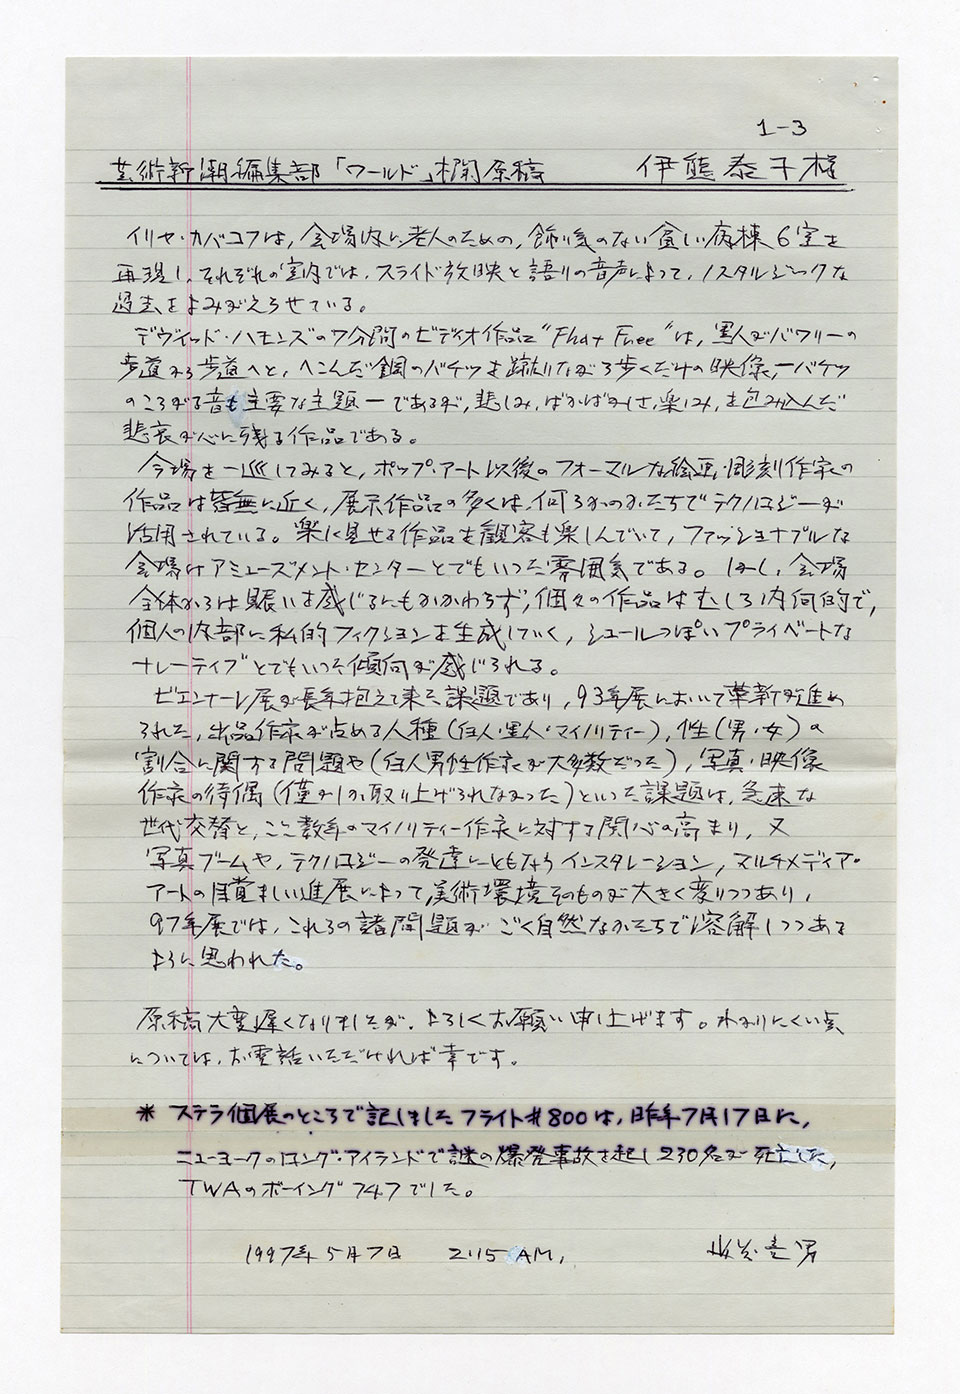 1-3
芸術新潮編集部「ワールド」欄原稿 伊熊泰子様
イリヤ・カバコフは、会場内に老人のための、飾り気のない貧しい病棟6室を
再現し、それぞれの室内では、スライド放映と語りの音声によって、ノスタルジックな
過去をよみがえらせている。
デヴィッド・ハモンズの7分間のビデオ作品"Phat Free"は、黒人がバワリーの
歩道から歩道へと、へこんだ鋼のバケツを蹴りながら歩くだけの映像、ーバケツ
のころがる音も主要な主題ーであるが、悲しみ、ばかばかしさ、楽しみ、を包み込んだ
悲哀が心に残る作品である。
会場を一巡してみると、ポップ・アート以後のフォーマルな絵画・彫刻作家の
作品は皆無に近く、展示作品の多くは、何らかのかたちでテクノロジーが
活用されている。楽に見せる作品を観客も楽しんでいて、ファッショナブルな
会場はアミューズメント・センターとでもいった雰囲気である。しかし、会場
全体からは賑いを感じるにもかかわらず、個々の作品はむしろ内向的で、
個人の内部に私的フィクションを生成していく、シュールっぽいプライベートな
ナレーティブとでもいった傾向が感じられる。
ビエンナーレ展が長年抱えて来た課題であり、93年展において革新が進め
られた、出品作家が占める人種(白人・黒人・マイノリティー)、性(男・女)の
割合に関する問題や(白人男性作家が大多数だった)、写真・映像
作家の待偶(僅かしか取り上げられなかった)といった課題は、急速な
世代交替と、ここ数年のマイノリティー作家に対する関心の高まり、又
写真ブームや、テクノロジーの発達にともなうインスタレーション、マルチメディア・
アートの目覚ましい進展によって、美術環境そのものが大きく変りつつあり、
97年展では、これらの諸問題がごく自然なかたちで溶解しつつある
ように思われた。
原稿大変遅くなりましたが、よろしくお願い申し上げます。わかりにくい点
については、お電話いただければ幸です。
* ステラ個展のところで記しましたフライト#800は、昨年7月17日に、
ニューヨークのロング・アイランドで謎の爆発事故を起し230名が死亡した、
TWAのボーイング747でした。
1997年5月7日 2:15 AM,